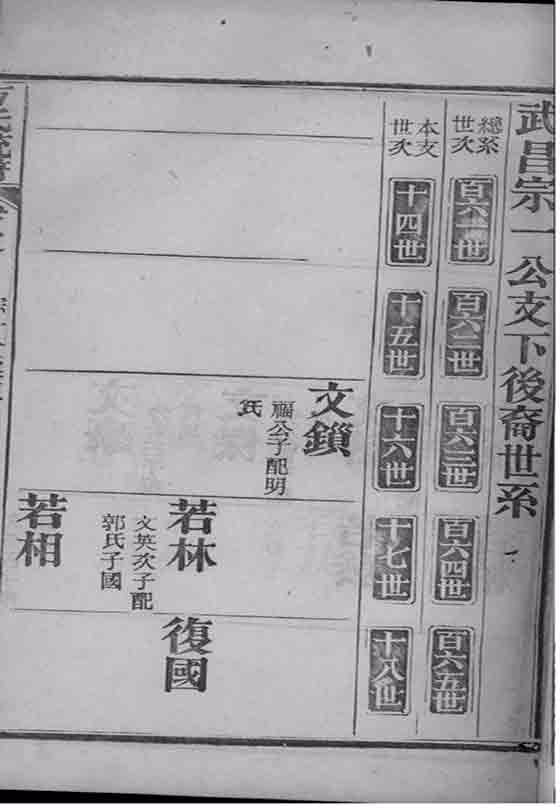 武昌宗一公支下後裔世系
總系
世次
百六一世
百六二世
百六三世
百六四世
百六五世
本支
世次
十四世
十五世
十六世
十七世
十八世
文鎖
福公子配明
氏
若林
文英次子配
郭氏子國
復國
若相